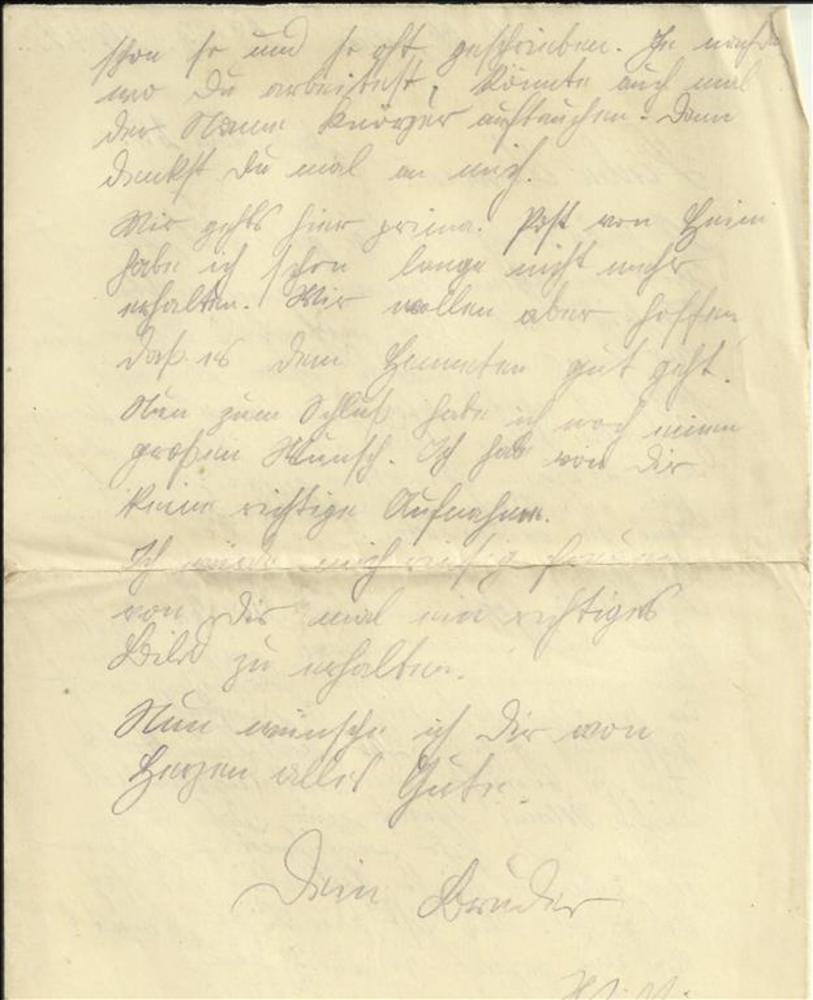 schon so und so oft geschrieben. Je nachdem
wo Du arbeitest, könnte auch mal
der Name auftauchen. Dann
denkst Du mal an mich.
Mir gehts hier prima. Post von Heim
habe ich schon lange nicht mehr
erhalten. Wir wollen aber hoffen,
daß es gut geht.
Nun zum Schluß habe ich noch einen
großen Wunsch. Ich hab von Dir
keine richtige Aufnahme.
Ich würde mich riesig freuen
von Dir mal ein richtiges
Bild zu erhalten.
Nun wünsche ich Dir von
Herzen alles Gute.
Dein Bruder